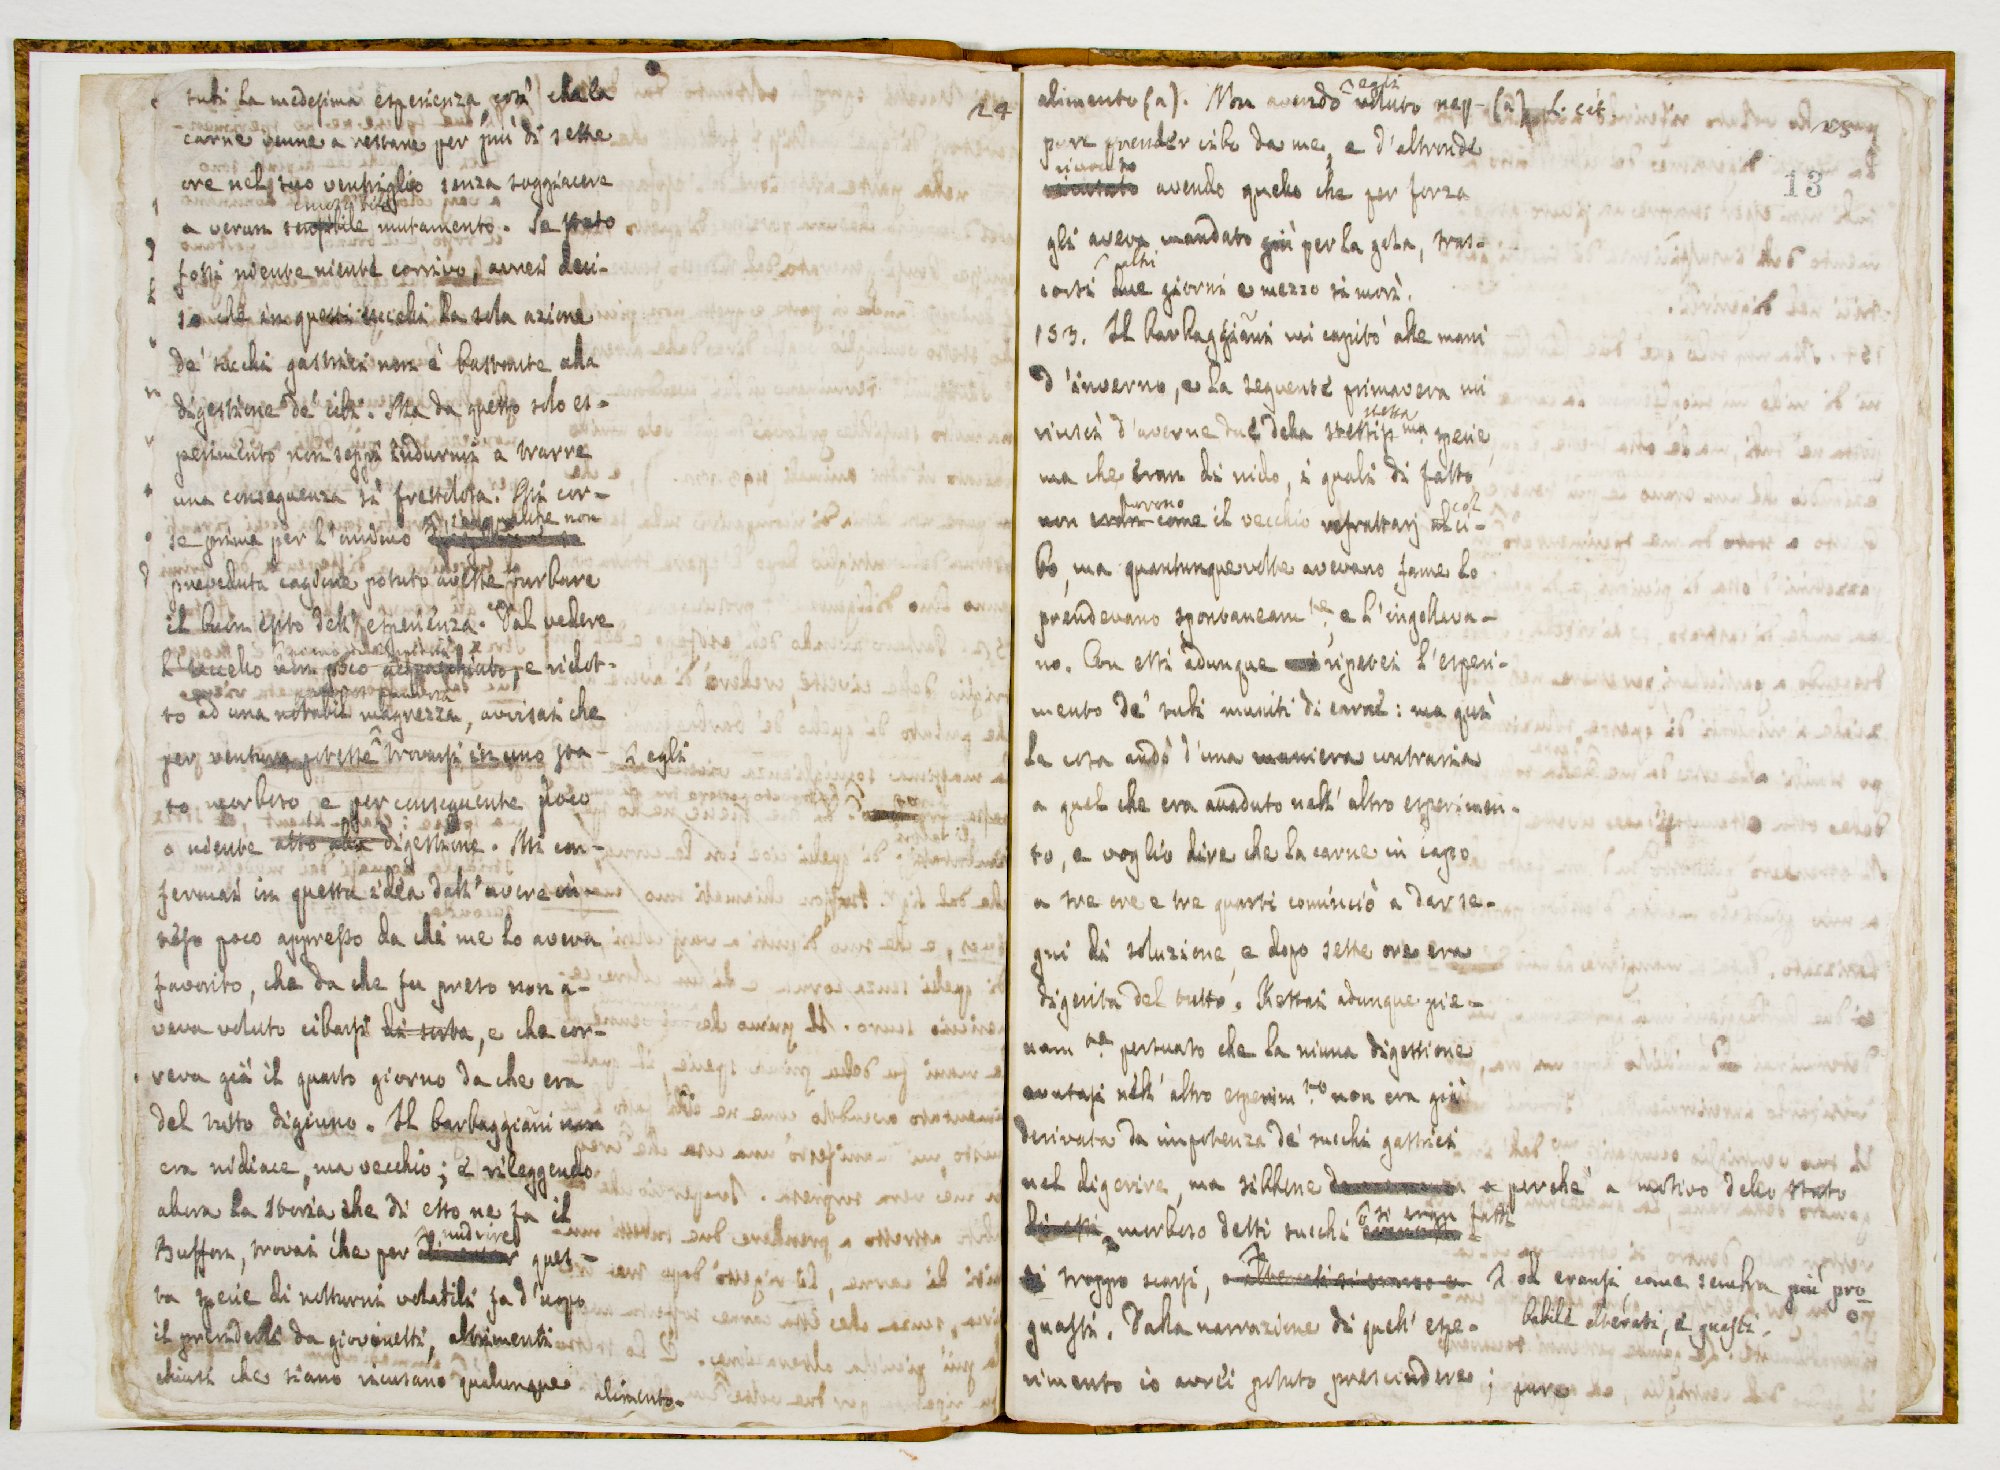 24
tubi la medesima esperienza così che la
carne venne a restare per più di sette
ore nel suo ventriglio senza soggiacere
a verun sensibile mutamento. Se stato
fossi niente niente corrivo, avrei deci-
so che in questi uccelli la sola azione
de' succhi gastrici non è bastante alla
digestione de' cibi. Ma da questo solo es-
perimento non seppi indurmi a trarre
una conseguenza sì frettolosa. Mi cor-
se prima per l'animo se qualche non
preveduta cagione potuto avesse turbare
il buon esito dell' esperienza. Dal vedere
l'uccello un poco e ridot-
to ad una notabil magrezza, avvisai che
per ventura potesse trovarsi in uno sta-
egli
to morboso, e per conseguente poco
o niente atto alla digestione. Mi con-
fermai in questa idea dall' avere in-
teso poco appresso da chi me lo aveva
favorito, che da che fu preso non a-
veva voluto cibarsi di sorta, e che cor-
reva già il quarto giorno da che era
del tutto digiuno. Il barbaggiani non
era nidiace, ma vecchio; e rileggendo
allora la storia che di esso ne fa il
Buffon, trovai che per nudrire ques-
ta specie di notturni volatili fa d'uopo
il prenderli da giovinetti, altrimenti
chiusi che siano ricusano qualunque
alimento.
25
13
alimento (a). Non avendo egli voluto nep-
(a) L. cit
pure prender cibo da me, e d'altronde
ricusato
avendo quello che per forza
gli aveva mandato giù per la gola, tras-
corsi altri due giorni e mezzo si morì.
153. Il barbaggiani mi capitò alle mani
d'inverno, e la seguente primavera mi
riuscì d'averne due della stessa specie
ma che eran di nido, i quali di fatto
non furono come il vecchio refrattarj al ci-
bo, ma quantunque volte avevano fame lo
prendevano spontaneam.te, e l'ingollava-
no. Con essi adunque ripetei l'esperi-
mento de' tubi muniti di carne: ma quì
la cosa andò d'una maniera contraria
a quel che era accaduto nell' altro esperimen-
to, e voglio dire che la carne in capo
a tre ore e tre quarti cominciò a dar se-
gni di soluzione, e dopo sette ore era
digerita del tutto. Restai adunque pie-
nam.te persuaso che la niuna digestione
avutasi nell' altro esperim.to non era già
derivata da impotenza de' succhi gastrici
nel digerire, ma sibbene perchè a motivo dello stato
morboso detti succhi si eran fatti
troppo scarsi,
od eransi, come sembra più pro-
babile alterati, e guasti.
guasti. Dalla narrazione di quell' espe-
rimento io avrei potuto prescindere; pure